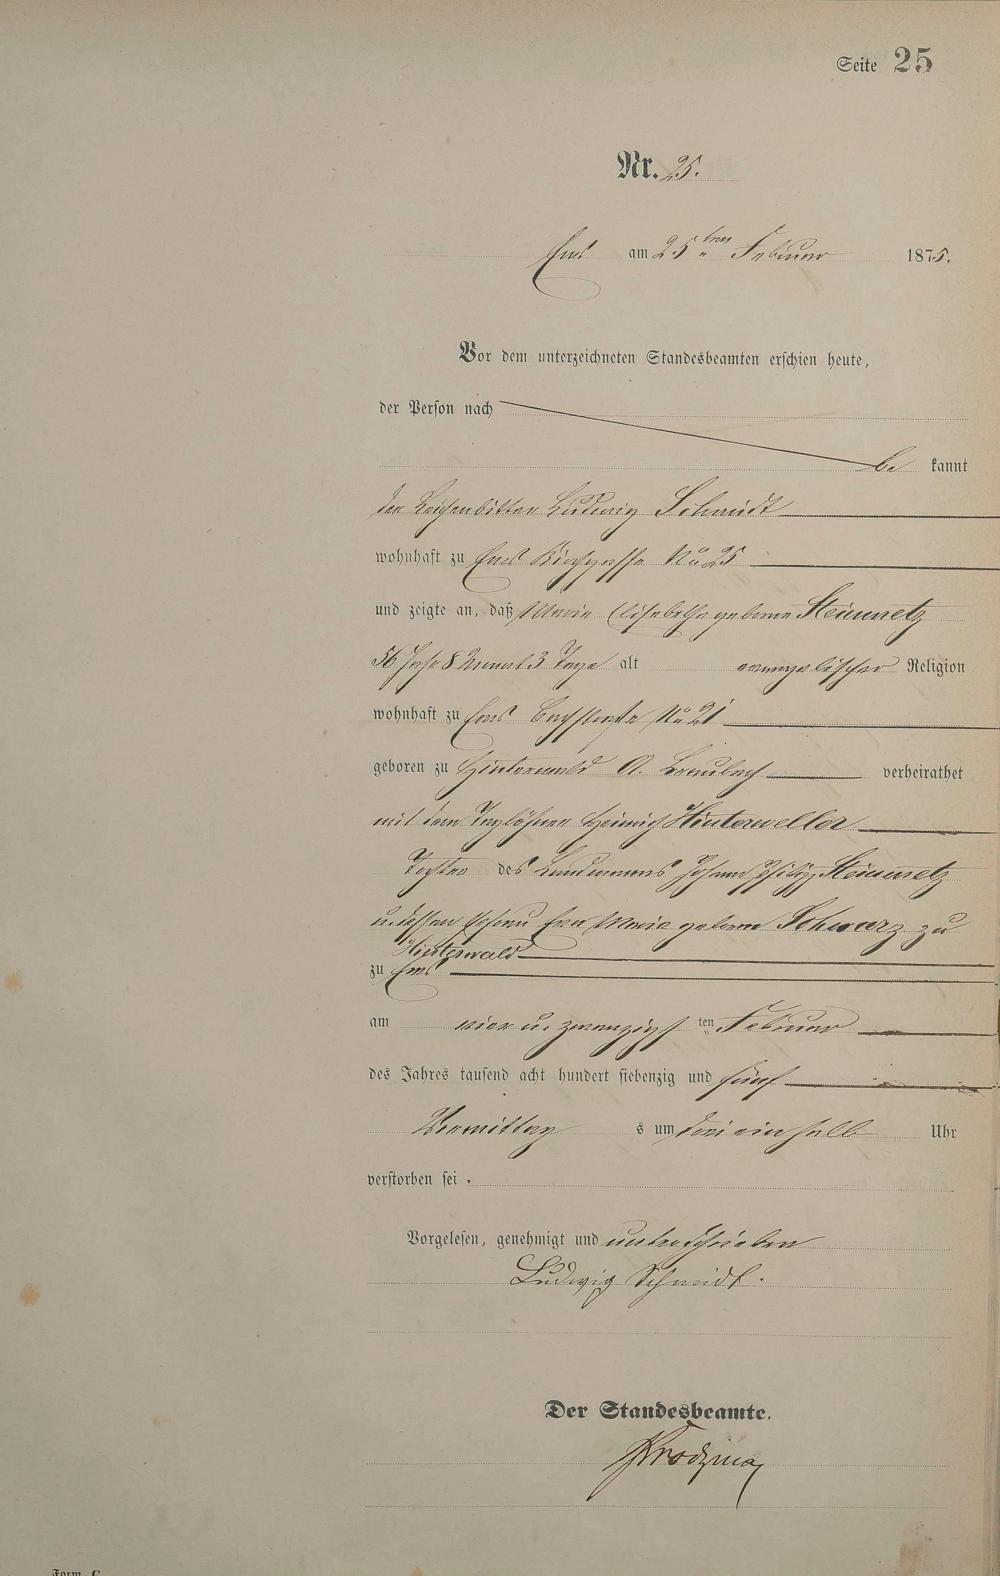 Seite 25
Nr. 25.
Ems am 25ten Februar 1875.
Vor dem unterzeichneten Standesbeamten erschien heute,
der Person nach
be kannt
der Leichenbitter Ludwig Schmidt
wohnhaft zu Ems Kirchgasse No 25
und zeigte an, daß Maria Elisabetha geborne Steinmetz
56 Jahr 8 Monat 3 Tage alt evangelischer Religion
wohnhaft zu Ems Bachstraße No 21
geboren zu Hinterwald A. Braubach verheirathet
mit dem Taglöhner Heinrich Hinterweller
Tochter des Landmanns Johann Philipp Steinmetz
u. dessen Ehefrau Eva Maria geborne Schwarz zu
Hinterwald
zu Ems
am vier u. zwanzigsten Februar
des Jahres tausend acht hundert siebenzig und fünf
Vormittag s um drei ein halb Uhr
verstorben sei.
Vorgelesen, genehmigt und unterschrieben
Ludwig Schmidt.
Der Standesbeamte.
Form. C.